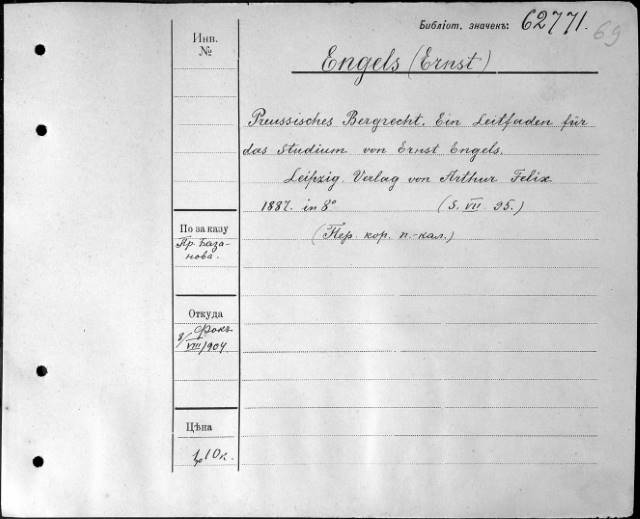 Библіот. значекъ: 62771. 69
Инв.
№
Engels (Ernst)
Preussisches Bergrecht. Ein Leitfaden für
das Studium von Ernst Engels.
Leipzig. Verlag von Arthur Felix.
1887. in 8° (S. VII. 95.)
(Пер. кор. п.-кал.)
По заказу
Пр. База-
нова.
Откуда
Фокъ
VIII/904.
Цѣна
10 к.